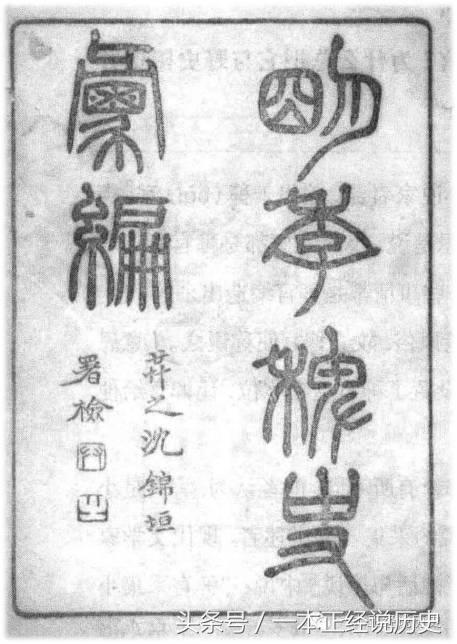 明季稗史
彙編
之沈錦垣
署檢
头条号 / 一本正经说历史